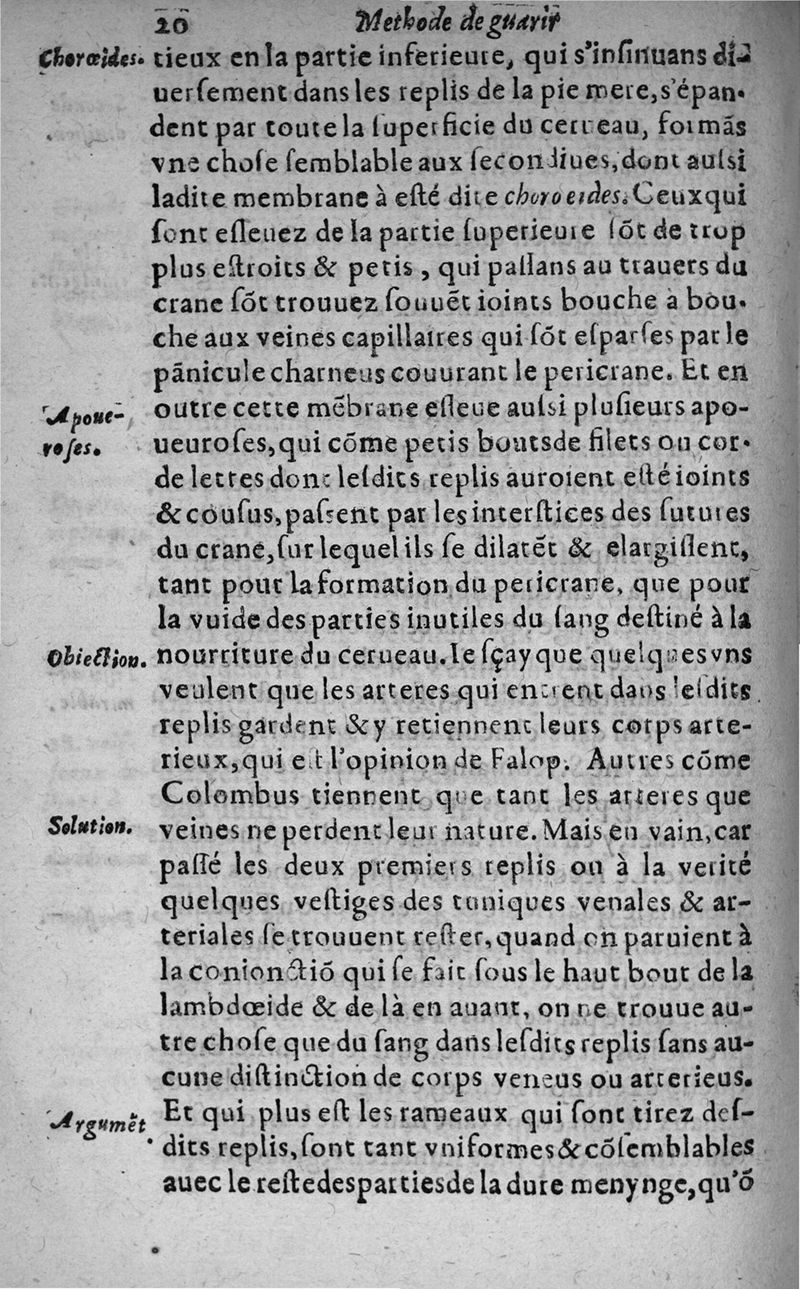 20 Methode de guarir
Chorœides. tieux en la partie inferieure, qui s'insinuans di-
uersement dans les replis de la pie mere, s'épan-
dent par toute la superficie du cerueau, formãs
vne chose semblable aux secondiues, dont aussi
ladite membrane à esté dite choroeides. Ceux qui
sont esleuez de la partie superieure sõt de trop
plus estroits & petis, qui passans au trauers du
crane sõt trouuez souuẽt ioints bouche à bou-
che aux veines capillaires qui sõt esparses par le
pãnicule charneus couurant le pericrane. Et en
Apoue- outre cette mẽbrane esleue aussi plusieurs apo-
roses. ueuroses, qui cõme petis bouts de filets ou cor-
delettes dont lesdits replis auroient esté ioints
& cousus, passent par les interstices des sutures
du crane, sur lequel ils se dilatẽt & elargissent,
tant pour la formation du pericrane, que pour
la vuide des parties inutiles du sang destiné à la
Obiection. nourriture du cerueau. Ie sçay que quelques vns
veulent que les arteres qui entrent dans lesdits
replis gardent & y retiennent leurs corps arte-
rieux, qui est l'opinion de Falop. Autres cõme
Colombus tiennent que tant les arteres que
Solution. veines ne perdent leur nature. Mais en vain, car
passé les deux premiers replis ou à la verité
quelques vestiges des tuniques venales & ar-
teriales se trouuent rester, quand on paruient à
la conionctiõ qui se fait sous le haut bout de la
lambdœide & de là en auant, on ne trouue au-
tre chose que du sang dans lesdits replis sans au-
cune distinction de corps veneus ou arterieus.
Argumẽt Et qui plus est les rameaux qui sont tirez des-
dits replis, sont tant vniformes & cõsemblables
auec le reste des parties de la dure menynge, qu'õ